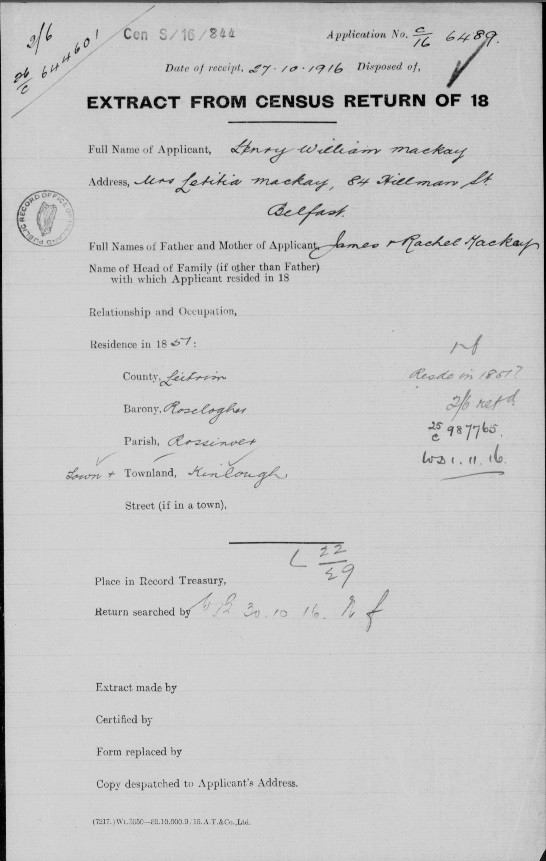 2/6
26/C 644601
Cen S/16/844
Application No. C/16 6489.
Date of receipt, 27.10.1916 Disposed of,
EXTRACT FROM CENSUS RETURN OF 18
Full Name of Applicant, Henry William Mackay
Address, Mrs Letitia Mackay, 84 Hillman St.
Belfast.
PUBLIC RECORD OFFICE OF IRELAND
Full Names of Father and Mother of Applicant, James & Rachel Mackay
Name of Head of Family (if other than Father)
with which Applicant resided in 18
Relationship and Occupation,
Residence in 1851:
nf
County, Leitrim
Resde in 1851?
Barony, Rosclogher
2/6 retd
Parish, Rossinver
25/C 987765.
Town & Townland, Kinlough
WD 1.11.16.
Street (if in a town),
L 22/29
Place in Record Treasury,
Return searched by 30.10.16. Nf
Extract made by
Certified by
Form replaced by
Copy despatched to Applicant's Address.
(7217.) Wt.3350—89.10,000.9/16. A.T.&Co.,Ltd.